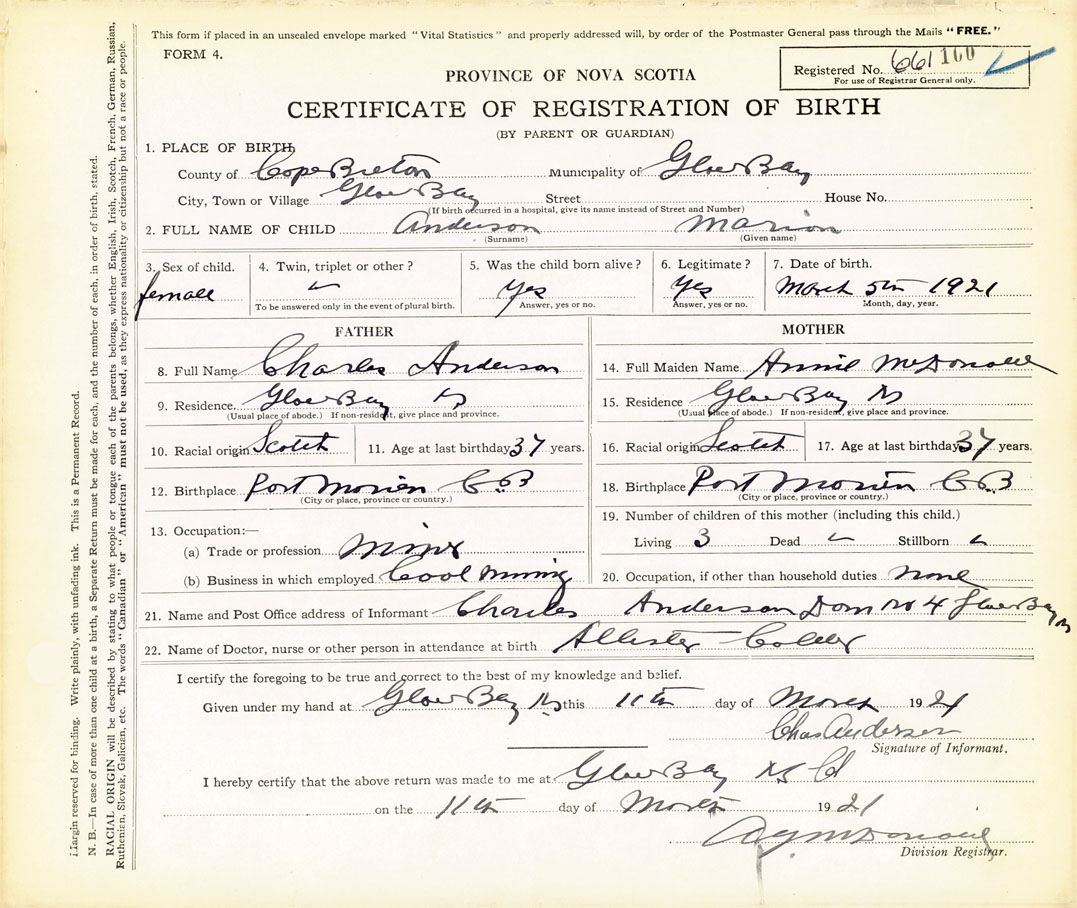 This form if placed in an unsealed envelope marked "Vital Statistics" and properly addressed will, by order of the Postmaster General pass through the Mails "FREE."
FORM 4.
Registered No. 661 160
For use of Registrar General only.
PROVINCE OF NOVA SCOTIA
CERTIFICATE OF REGISTRATION OF BIRTH
(BY PARENT OR GUARDIAN)
1. PLACE OF BIRTH
County of Cape Breton Municipality of Glace Bay
City, Town or Village Glace Bay Street House No.
(If birth occurred in a hospital, give its name instead of Street and Number)
2. FULL NAME OF CHILD Anderson Marion
(Surname) (Given name)
3. Sex of child. 4. Twin, triplet or other? 5. Was the child born alive? 6. Legitimate? 7. Date of birth.
female Yes Yes March 5th 1921
To be answered only in the event of plural birth. Answer, yes or no. Answer, yes or no. Month, day, year.
FATHER
8. Full Name Charles Anderson
9. Residence. Glace Bay NS
(Usual place of abode.) If non-resident, give place and province.
10. Racial origin Scotch 11. Age at last birthday 37 years.
12. Birthplace Port Morien C.B
(City or place, province or country.)
13. Occupation:—
(a) Trade or profession Miner
(b) Business in which employed Coal Mining
MOTHER
14. Full Maiden Name Annie McDonald
15. Residence Glace Bay NS
(Usual place of abode.) If non-resident, give place and province.
16. Racial origin Scotch 17. Age at last birthday 37 years.
18. Birthplace Port Morien C.B
(City or place, province or country.)
19. Number of children of this mother (including this child.)
Living 3 Dead Stillborn
20. Occupation, if other than household duties none
21. Name and Post Office address of Informant Charles Anderson Dom No 4 Glace Bay NS
22. Name of Doctor, nurse or other person in attendance at birth Allister Calder
I certify the foregoing to be true and correct to the best of my knowledge and belief.
Given under my hand at Glace Bay NS this 11th day of March 1921
Chas Anderson
Signature of Informant.
I hereby certify that the above return was made to me at Glace Bay NS
on the 11th day of March 1921
McDonald
Division Registrar.
Margin reserved for binding. Write plainly, with unfading ink. This is a Permanent Record.
N. B.—In case of more than one child at a birth, a Separate Return must be made for each, and the number of each, in order of birth, stated.
RACIAL ORIGIN will be described by stating to what people or tongue each of the parents belongs, whether English, Irish, Scotch, French, German, Russian,
Ruthenian, Slovak, Galician, etc. The words "Canadian" or "American" must not be used, as they express nationality or citizenship but not a race or people.